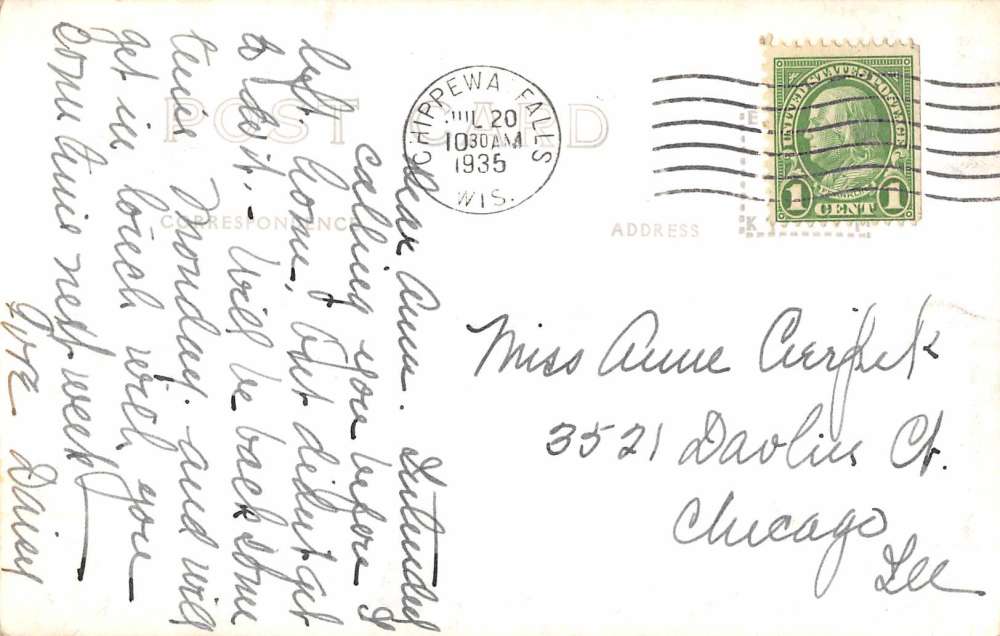 POST CARD
CORRESPONDENCE
ADDRESS
CHIPPEWA FALLS
JUL 20
10 30 AM
1935
WIS.
UNITED STATES POSTAGE
FRANKLIN
1 CENT 1
E
K M
Dear Anne. Intended
calling you before I
left home, but didn't get
to do it. - Will be back some
time Monday. and will
get in touch with you
some time next week
Love Daisy
Miss Anne
3521 Davlin Ct.
Chicago
Ill